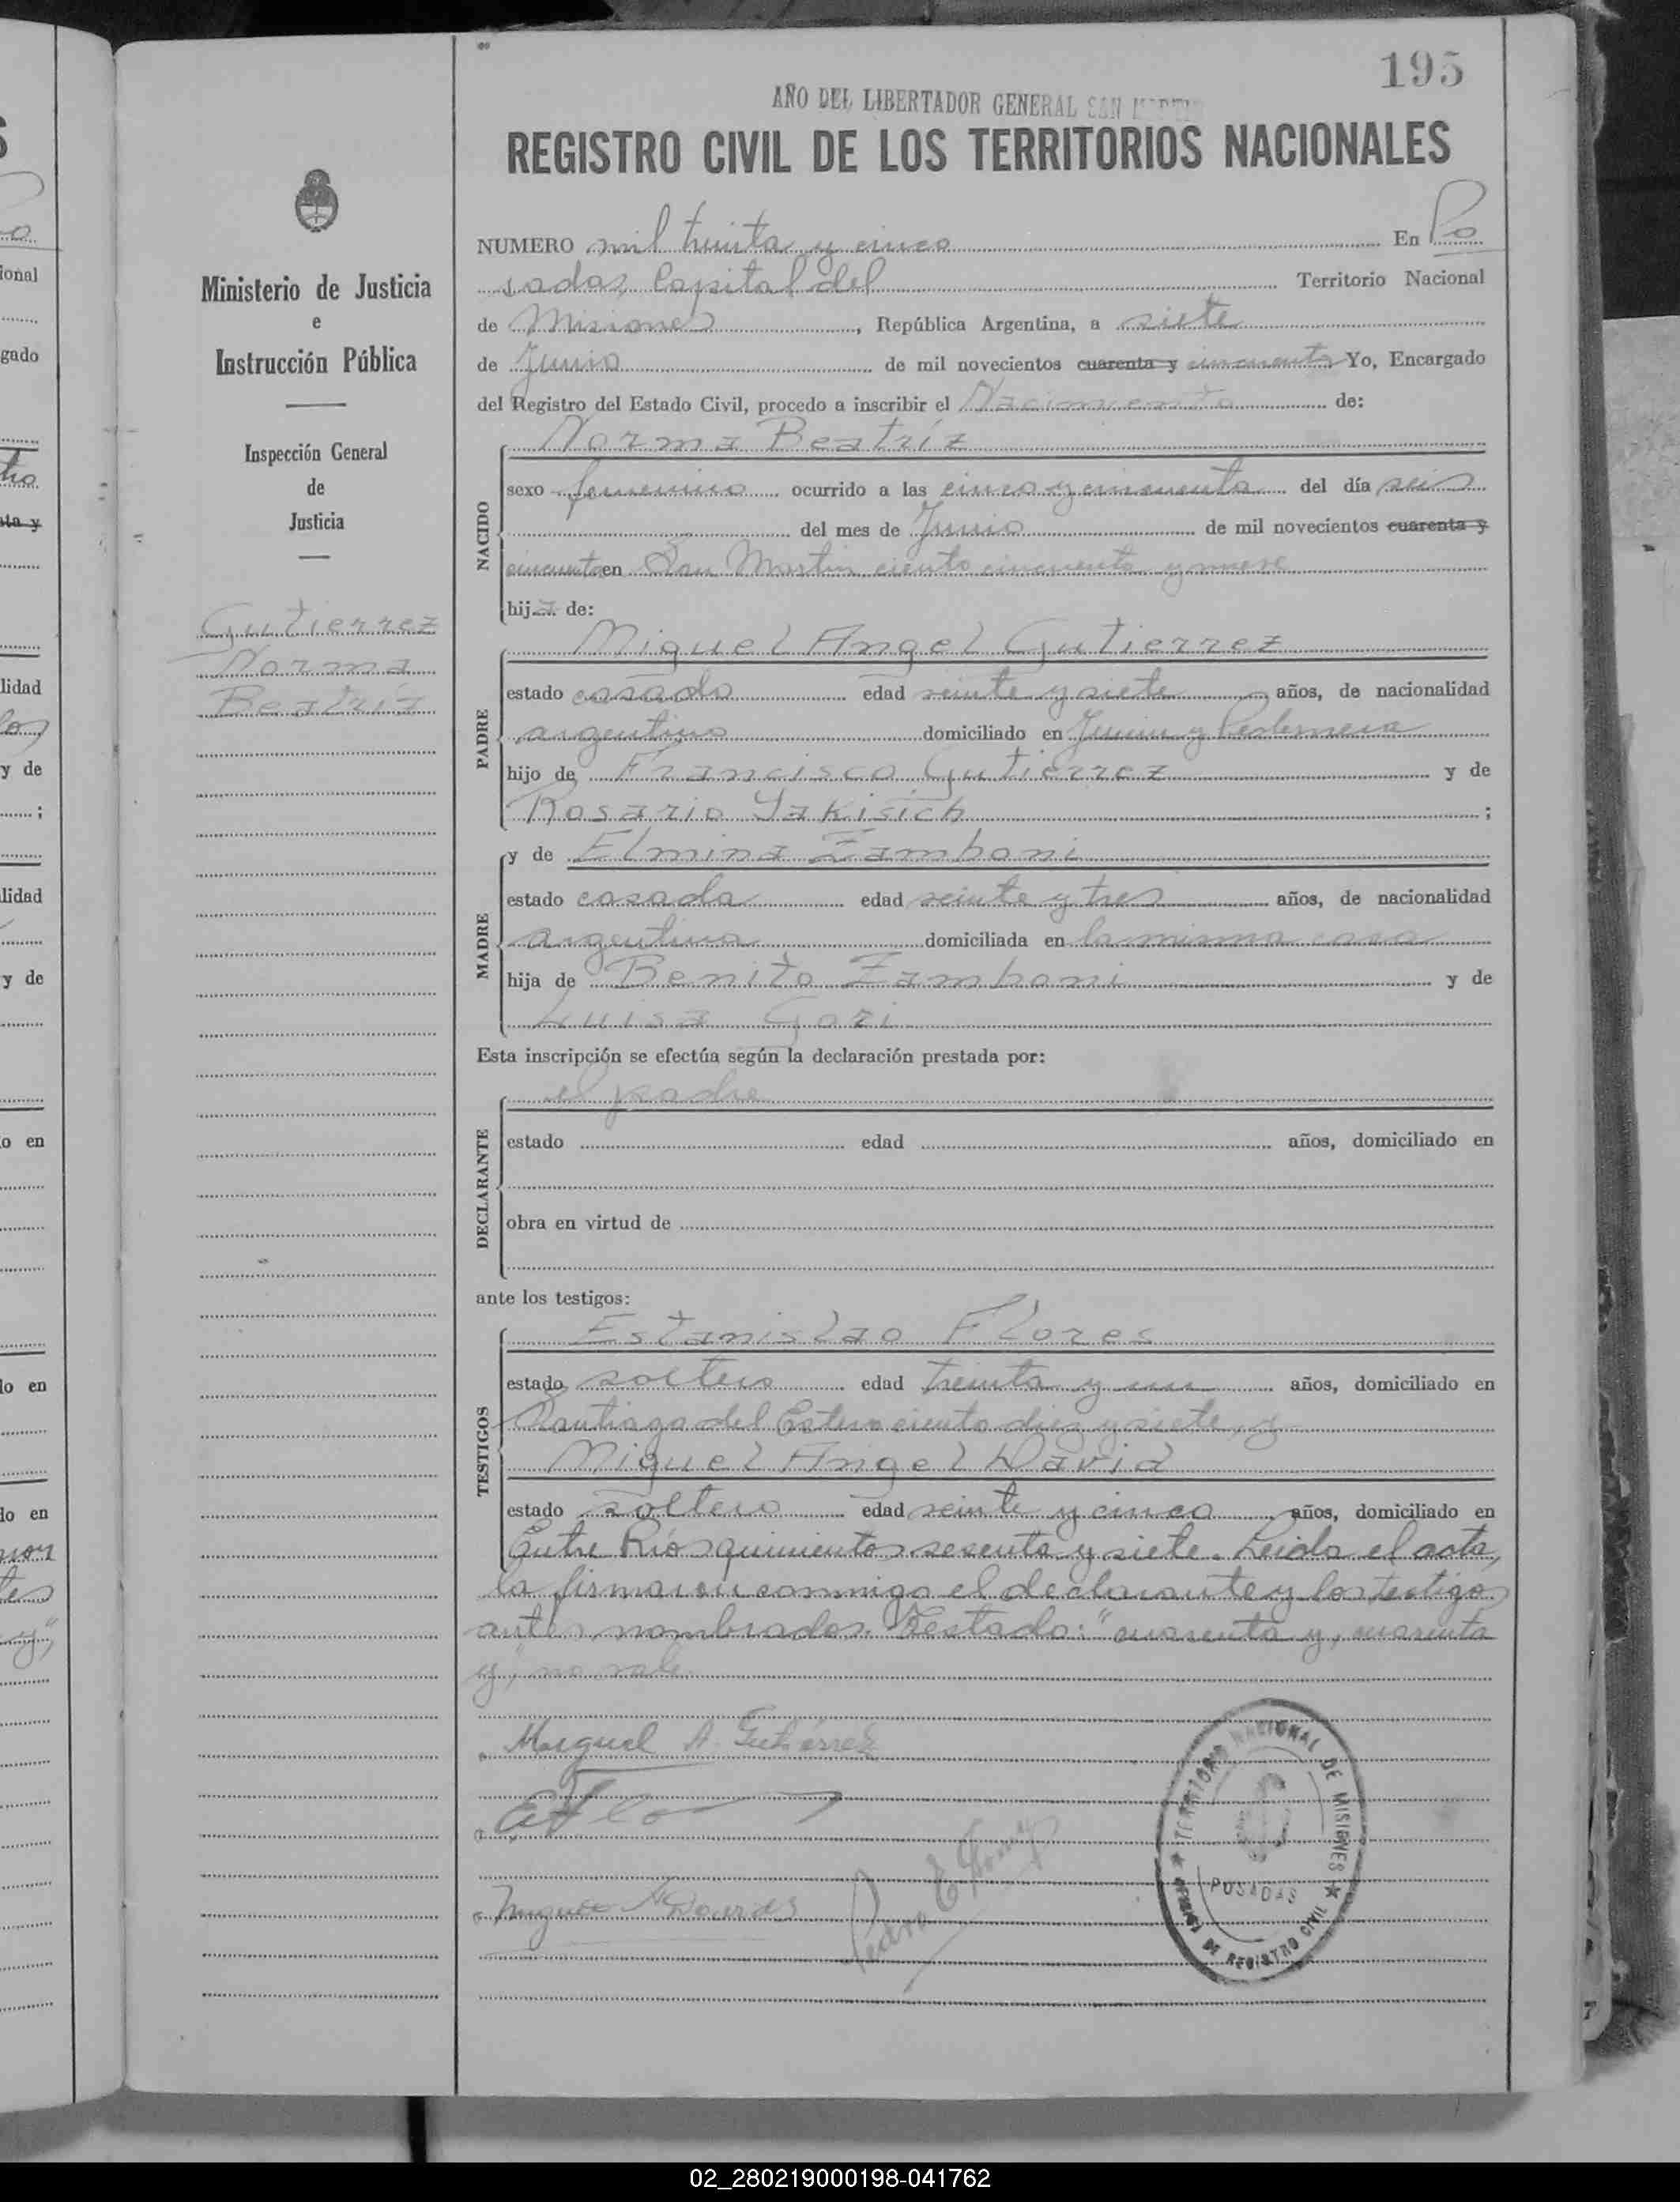 195
AÑO DEL LIBERTADOR GENERAL SAN
REGISTRO CIVIL DE LOS TERRITORIOS NACIONALES
Ministerio de Justicia
e
Instrucción Pública
Inspección General
de
Justicia
Gutierrez
Norma
Beatríz
NUMERO mil treinta y cinco En Po
sadas, Capital del Territorio Nacional
de Misiones, República Argentina, a siete
de Junio de mil novecientos cuarenta y cincuenta Yo, Encargado
del Registro del Estado Civil, procedo a inscribir el Nacimiento de:
NACIDO
Norma Beatríz
sexo femenino ocurrido a las cinco y cincuenta del día seis
del mes de Junio de mil novecientos cuarenta y
cincuenta en San Martin ciento cincuenta y nueve
hija de:
PADRE
Miguel Angel Gutierrez
estado casado edad veinte y siete años, de nacionalidad
argentino domiciliado en Junin y
hijo de Francisco Gutierrez y de
Rosario Yakisich ;
MADRE
y de Elmina Zamboni
estado casada edad veinte y tres años, de nacionalidad
argentina domiciliada en la misma casa
hija de Benito Zamboni y de
Luisa Gori
Esta inscripción se efectúa según la declaración prestada por:
DECLARANTE
el padre
estado edad años, domiciliado en
obra en virtud de
ante los testigos:
TESTIGOS
Estanislao Flores
estado soltero edad treinta y un años, domiciliado en
Santiago del Estero ciento diez y siete, y
Miguel Angel David
estado soltero edad veinte y cinco años, domiciliado en
Entre Ríos quinientos sesenta y siete. Leida el acta,
la firmaron conmigo el declarante y los testigos
antes nombrados. Testado: "cuarenta y, cuarenta
y", no vale.
Miguel A. Gutiérrez
Miguel A David
Pedro E
TERRITORIO NACIONAL DE MISIONES
POSADAS
DE REGISTRO CIVIL
02_280219000198-041762